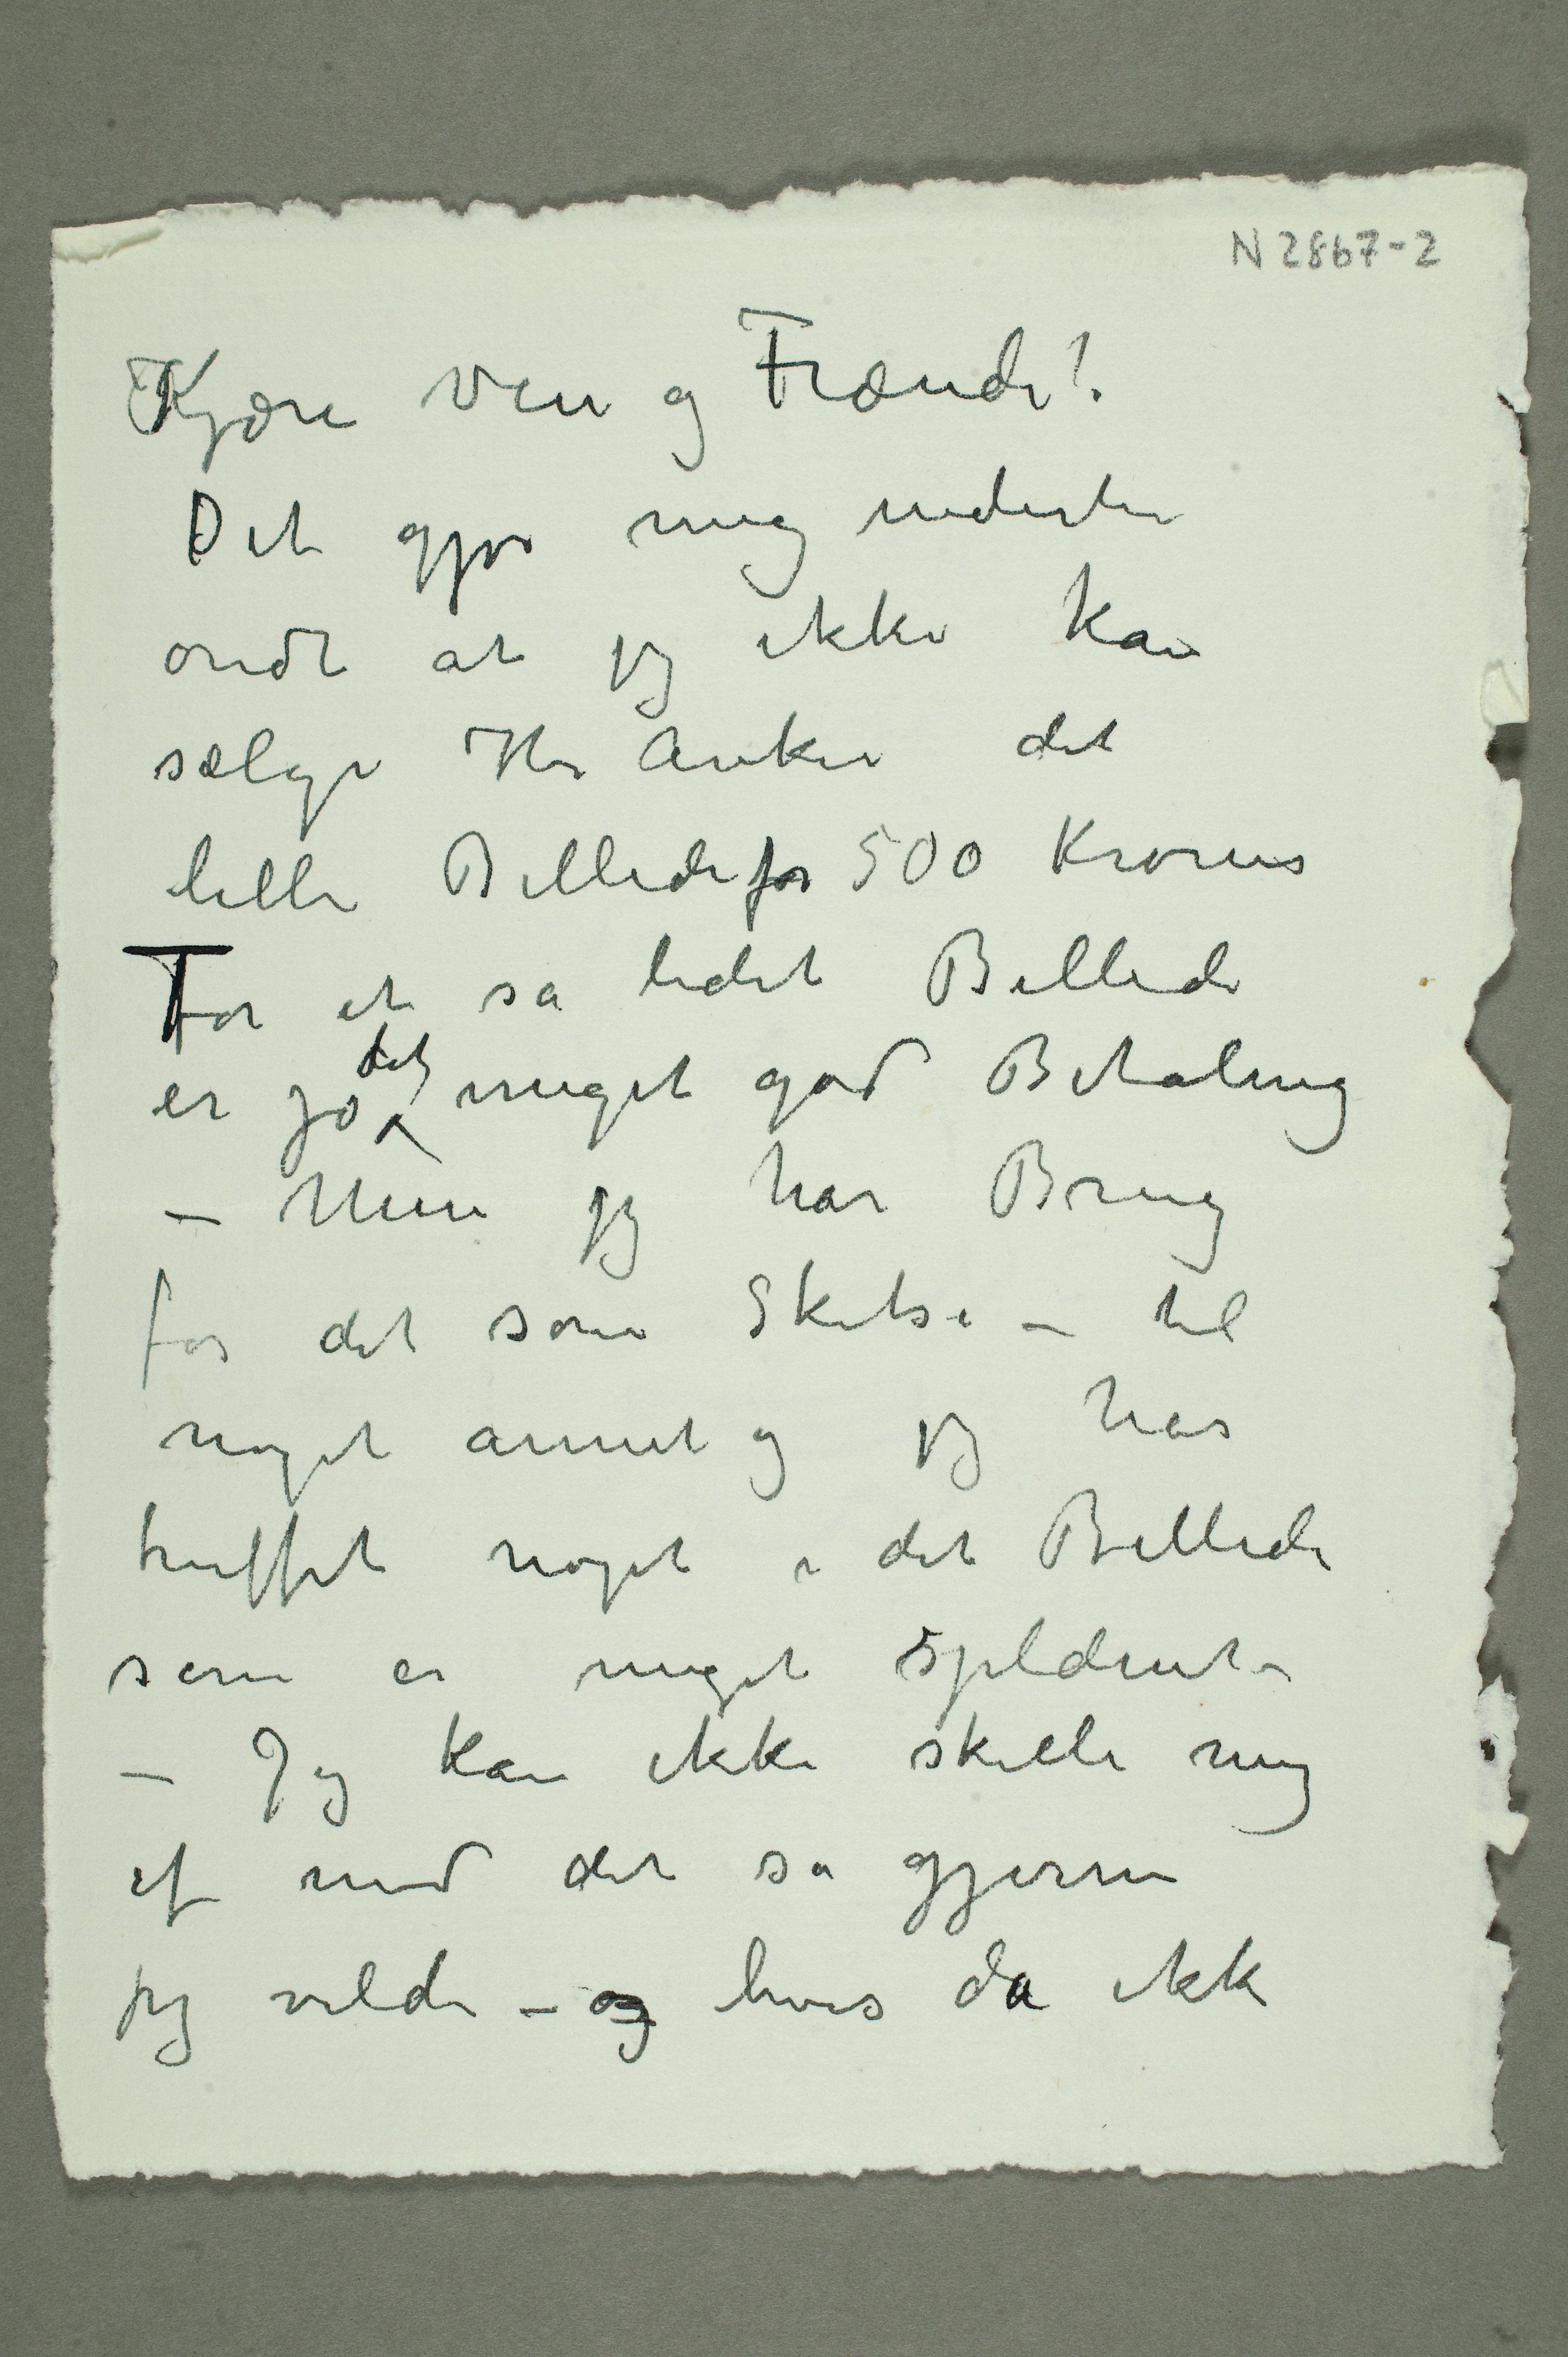 N 2867-2
Kjære Ven og Frænde!
Det gjør mig inderlig
ondt at jeg ikke kan
sælge Hr Anker det
lille Billede for 500 Kroner
For et så lidet Billede
er jo det meget god Betaling
– Men jeg har Brug
for det som Skitse – til
noget annet og jeg har
truffet noget i det Billede
som er meget
– Jeg kan ikke skille mig
af med det så gjerne
jeg vilde – og hvis da ikk